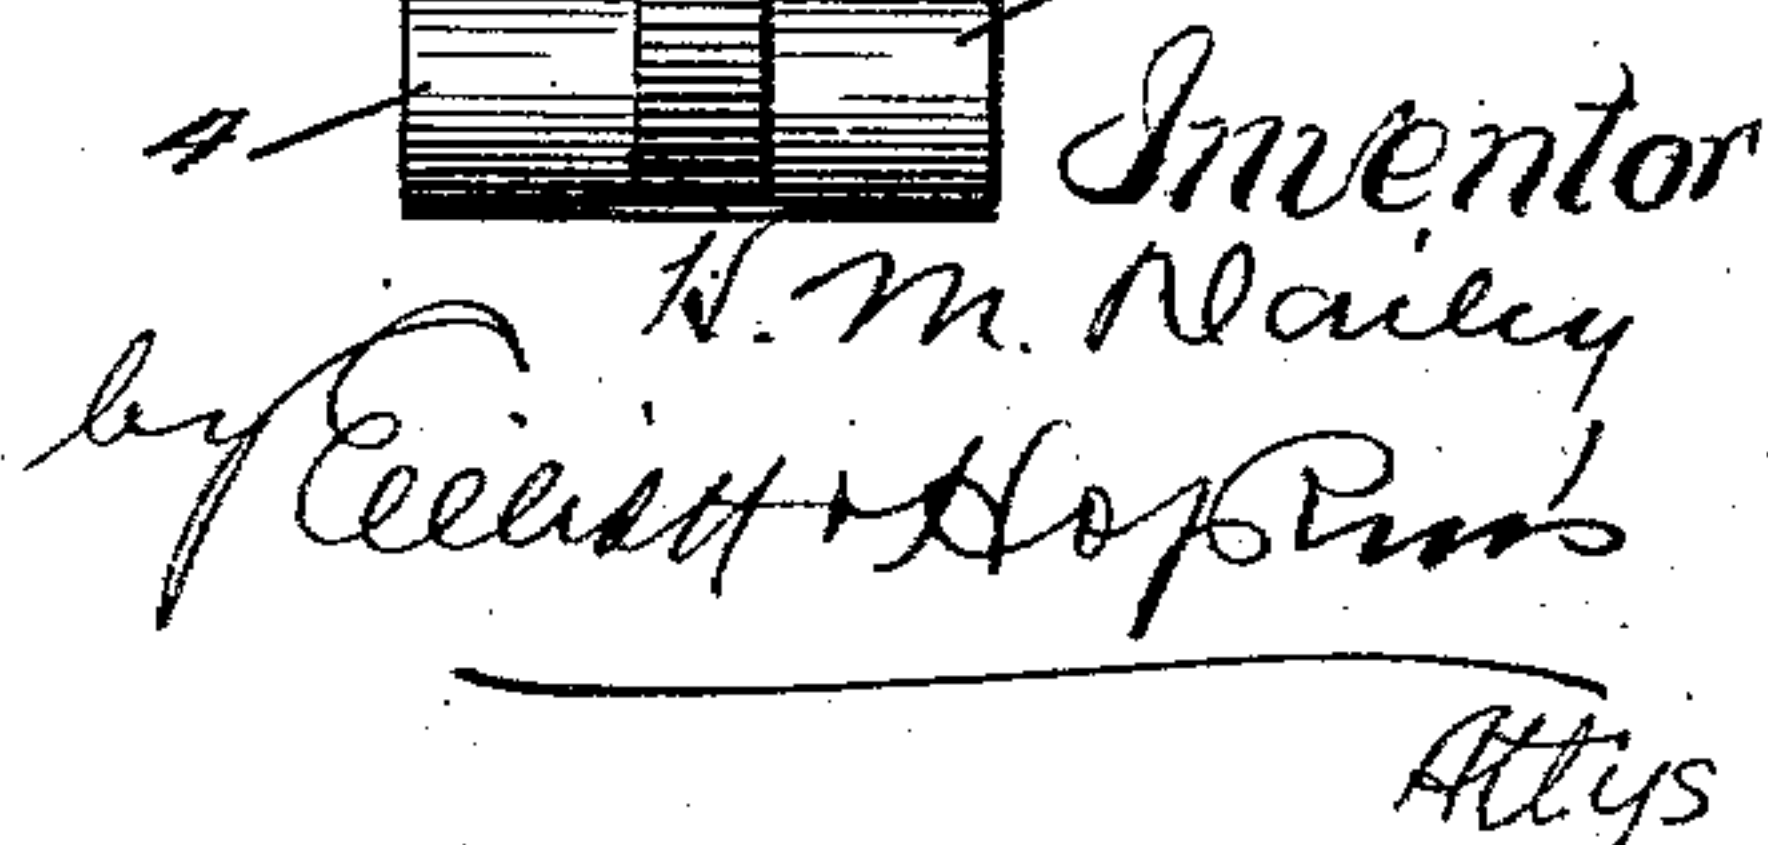 4
Inventor
H. M. Dailey
by Elliott & Hopkins
Attys